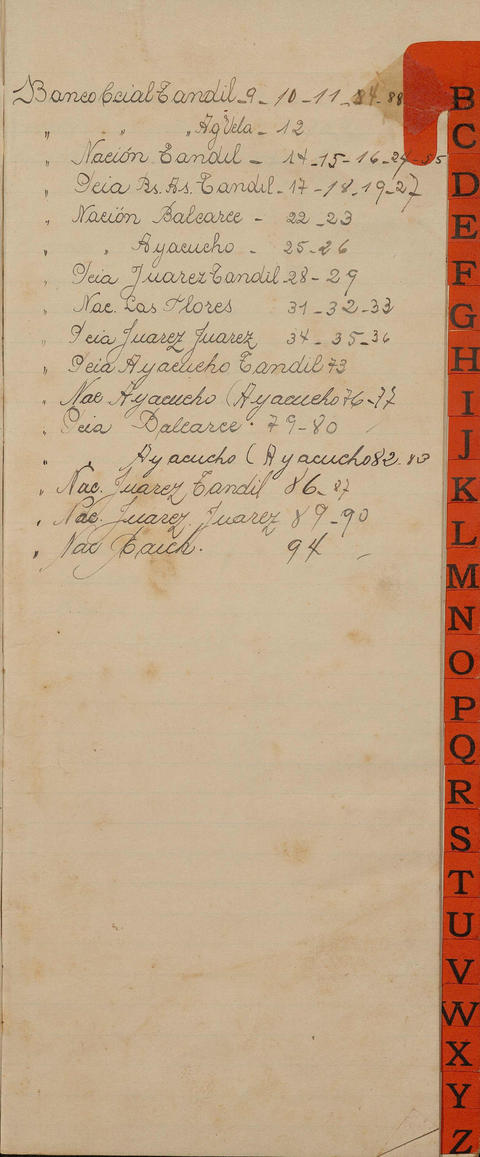 Banco Ccial Tandil - 9 - 10 - 11 - 84 - 88
" " " Ag Vela - 12
" Nación Tandil - 14 - 15 - 16 - 24 - 85
" Pcia Bs. As. Tandil - 17 - 18 - 19 - 27
" Nación Balcarce - 22 - 23
" " Ayacucho - 25 - 26
" Pcia Juarez Tandil - 28 - 29
" Nac. Las Flores 31 - 32 - 33
" Pcia Juarez Juarez 34 - 35 - 36
" Pcia Ayacucho Tandil 73
" Nac Ayacucho (Ayacucho 76 - 77
" Pcia Balcarce . 79 - 80
" " Ayacucho (Ayacucho 82 . 83
" Nac. Juarez Tandil 86 - 87
" Nac. Juarez Juarez 89 - 90
" Nac Rauch. 94 -
B
C
D
E
F
G
H
I
J
K
L
M
N
O
P
Q
R
S
T
U
V
W
X
Y
Z